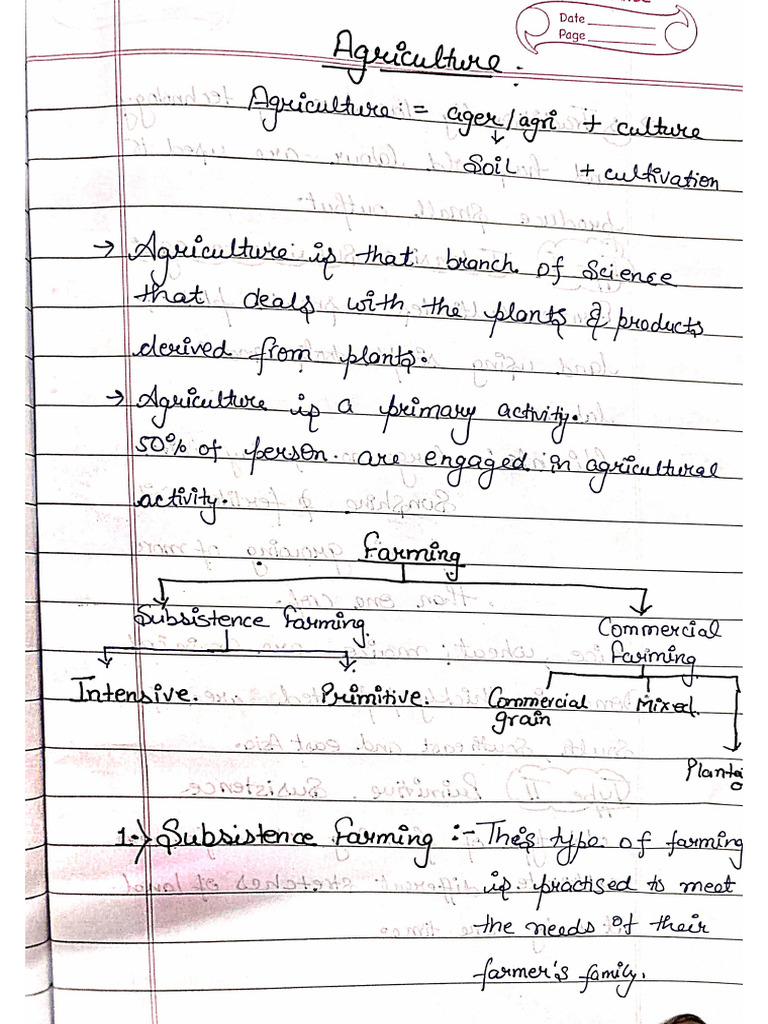 Date
Page
Agriculture.
Agriculture := ager/agri + culture
↓
Soil + cultivation
→ Agriculture is that branch of Science
that deals with the plants & products
derived from plants.
→ Agriculture is a primary activity.
50% of person are engaged in agricultural
activity.
Farming
Subsistence farming.
Commercial
farming
Intensive. Primitive. Commercial
grain Mixed.
Planta
o
1.→) Subsistence farming :- This type of farming
is practised to meet
the needs of their
farmer's family.